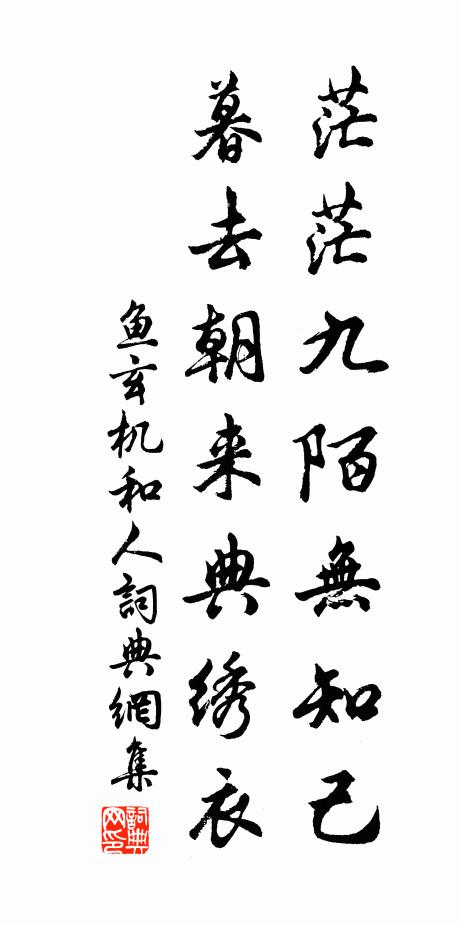 茫茫九陌無知己
暮去朝来典绣衣
鱼玄机和人詞典網集
詞典
网印